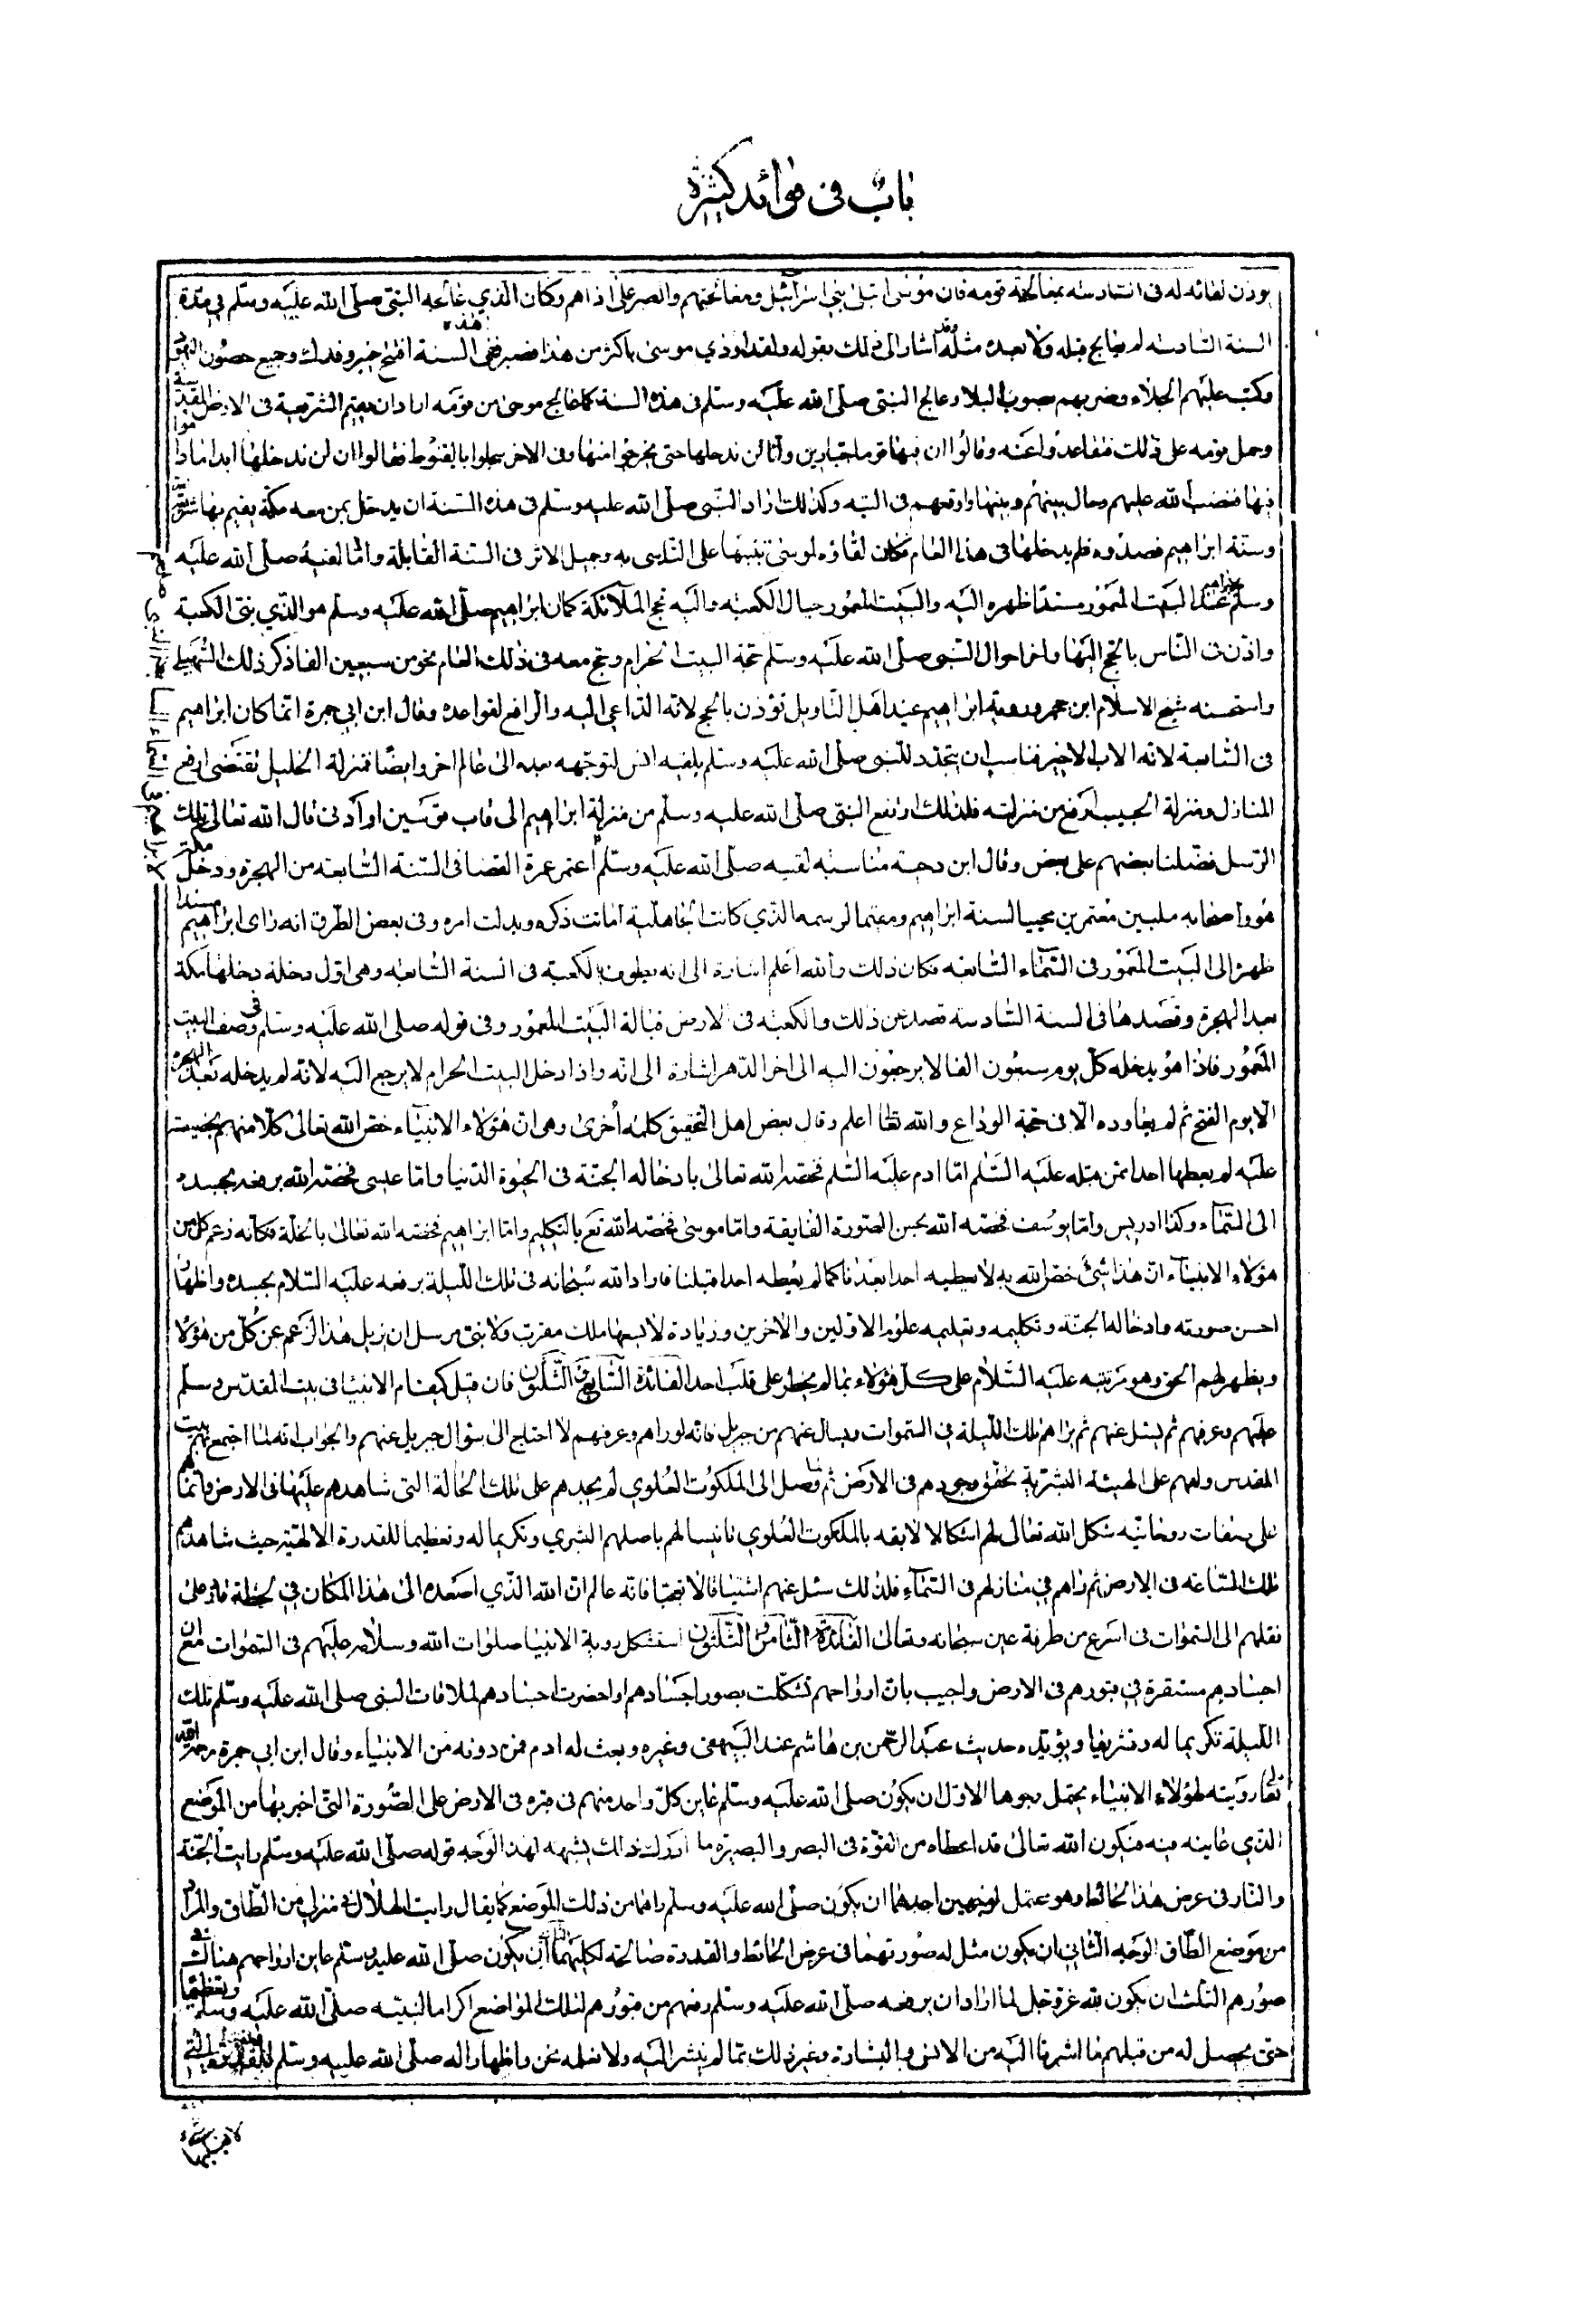 باب فى فوائد كثيرة
يوذن لقائه له فى السادسة بمعالجة قومه فان موسى ابتلى ببنى اسرائيل ومعالجتهم والصبر على اذاهم وكان الذي عالجه النبى صلى الله عليه وسلم في هذه
السنة السادسة لم يعالج قبله ولا بعده مثله وقد اشار الى ذلك بقوله ولقد اوذي موسى باكثر من هذا فصبر ففى هذه السنة افتتح خيبر وفدك وجميع حصون اليهود
وكتب عليهم الجلاء وضربهم بصوت البلا وعالج النبى صلى الله عليه وسلم فى هذه السنة كما عالج موسى من قومه اراد ان يقيم الشريعة فى الارض المقدسة
وحمل قومه على ذلك فتقاعدوا عنه وقالوا ان فيها قوما جبارين وانا لن ندخلها حتى يخرجوا منها وفى الاخر سجلوا بالقنوط فقالوا ان لن ندخلها ابدا ماداموا
فيها فغضب الله عليهم وحال بينهم وبينها واوقعهم فى التيه وكذلك اراد النبى صلى الله عليه وسلم فى هذه السنة ان يدخل بمن معه مكة يقيم بها شريعة
وسنة ابراهيم فصدوه فلم يدخلها فى هذا العام فكان لقاؤه لموسى تنبيها على التاسى به وجميل الاثر فى السنة القابلة واما لقيه صلى الله عليه
وسلم ابراهيم عند البيت المعمور مسندا ظهره اليه والبيت المعمور حيال الكعبة واليه تحج الملائكة كما ان ابراهيم صلى الله عليه وسلم هو الذي بنى الكعبة
واذن فى الناس بالحج اليها واخر احوال النبى صلى الله عليه وسلم حجة البيت الحرام وحج معه فى ذلك العام نحو من سبعين الفا ذكر ذلك السهيلى
واستحسنه شيخ الاسلام ابن حجر ورؤية ابراهيم عند اهل التاويل تؤذن بالحج لانه الداعي اليه والرافع لقواعده وقال ابن ابي جمرة انما كان ابراهيم
فى السابعة لانه الاب الاخير فناسب ان يتجدد للنبى صلى الله عليه وسلم بلقيه انس لتوجهه بعده الى عالم اخر وايضا فمنزلة الخليل تقتضى ارفع
المنازل ومنزلة الحبيب ارفع من منزلته فلذلك ارتفع النبى صلى الله عليه وسلم من منزلة ابراهيم الى قاب قوسين او ادنى قال الله تعالى تلك
الرسل فضلنا بعضهم على بعض وقال ابن دحية مناسبة لقيه صلى الله عليه وسلم اعتمر عمرة القضا فى السنة السابعة من الهجرة ودخل مكة
هو واصحابه ملبين معتمرين محييا لسنة ابراهيم ومقيما لرسمه الذي كانت الجاهلية اماتت ذكره وبدلت امره وفى بعض الطرق انه راى ابراهيم مسندا
ظهره الى البيت المعمور فى السماء السابعة فكان ذلك والله اعلم اشارة الى انه يطوف بالكعبة فى السنة السابعة وهى اول دخلة دخلها مكة
بعد الهجرة وقصدها فى السنة السادسة فصد عن ذلك والكعبة فى الارض قبالة البيت المعمور وفى قوله صلى الله عليه وسلم فى وصف البيت
المعمور فاذا هو يدخله كل يوم سبعون الفا لا يرجعون اليه الى اخر الدهر اشارة الى انه واذا دخل البيت الحرام لا يرجع اليه لانه لم يدخله بعد الهجرة
الا يوم الفتح ثم لم يعاوده الا فى حجة الوداع والله تعالى اعلم وقال بعض اهل التحقيق كلمة اخرى وهى ان هؤلاء الانبياء خص الله تعالى كلا منهم بخصيصة
عليه لم يعطها احدا ممن مثله عليه السلم اما ادم عليه السلم فخصه الله تعالى بادخاله الجنة فى الحيوة الدنيا واما عيسى فخصه الله برفعه بجسده
الى السماء وكذا ادريس واما يوسف فخصه الله بحسن الصورة الفايقة واما موسى فخصه الله تع بالتكليم واما ابراهيم فخصه الله تعالى بالخلة فكانه زعم كل من
هؤلاء الانبياء ان هذا شئ خص الله به لا يعطيه احدا بعدنا كما لم يعطه احدا قبلنا فاراد الله سبحانه فى تلك الليلة برفعه عليه السلام بجسده واظهار
احسن صورته وادخاله الجنة وتكليمه وتعليمه علوم الاولين والاخرين وزيادة لا يسعها ملك مقرب ولا نبى مرسل ان يزيل هذا الزعم عن كل من هؤلا
ويظهر لهم الحق وهو مرتبته عليه السلام على كل هؤلاء بما لم يخطر على قلب احد الفائدة السابع والثلثون فان قيل كيف ام الانبيا فى بيت المقدس وسلم
عليهم وعرفهم ثم يسئل عنهم ثم يراهم تلك الليلة في السموات ويسال عنهم من جبريل فانه لو راهم وعرفهم لا احتاج الى سؤال جبريل عنهم والجواب انه لما اجتمع بهم ببيت
المقدس وامهم على الهيئة البشرية تحقق وجودهم فى الارض ثم لما وصل الى الملكوت العلوي لم يجدهم على تلك الحالة التى شاهدهم عليها فى الارض وانما هم
على صفات روحانيه شكل الله تعالى لهم اشكالا لايقه بالملكوت العلوي تانيسا لهم باصلهم البشري وتكريما له وتعظيما للقدرة الالهية حيث شاهدهم
تلك الساعة فى الارض ثم راهم في منازلهم فى السماء فلذلك سئل عنهم استثباتا لا تعجبا فانه عالم ان الله الذي اصعده الى هذا المكان في لحظة قادر على
نقلهم الى السموات فى اسرع من طرفة عين سبحانه وتعالى الفائدة الثامن والثلثون استشكل رؤية الانبيا صلوات الله وسلامه عليهم فى السموات مع ان
اجسادهم مستقرة في قبورهم فى الارض واجيب بان ارواحهم تشكلت بصور اجسادهم او احضرت اجسادهم لملاقات النبى صلى الله عليه وسلم تلك
الليلة تكريما له وتشريفا ويؤيده حديث عبد الرحمن بن هاشم عند البيهقى وغيره وبعث له ادم فمن دونه من الانبياء وقال ابن ابي جمرة رحمه الله
تعالى رؤيته لهؤلاء الانبياء يحتمل وجوها الاول ان يكون صلى الله عليه وسلم عاين كل واحد منهم فى قبره فى الارض على الصورة التى اخبر بها من الموضع
الذي عاينه فيه فيكون الله تعالى قد اعطاه من القوة فى البصر والبصيرة ما ادرك ذلك يشبهه لهذا الوجه قوله صلى الله عليه وسلم رايت الجنة
والنار فى عرض هذا الحائط وهو محتمل لوجهين احدهما ان يكون صلى الله عليه وسلم راهما من ذلك الموضع كما يقال رايت الهلال فى منزلي من الطاق والمراد
من موضع الطاق الوجه الثاني ان يكون مثل له صورتهما فى عرض الحائط والقدرة صالحة لكليهما الثانى ان يكون صلى الله عليه وسلم عاين ارواحهم هناك فى
صورهم الثالث ان يكون الله عز وجل لما اراد ان يرفعه صلى الله عليه وسلم رفعهم من قبورهم لتلك المواضع اكراما لنبيه صلى الله عليه وسلم وتعظيما
حتى يحصل له من قبلهم ما اشرنا اليه من الانس والبشارة وغير ذلك مما لم يشر اليه ولا نعلمه نحن واظهارا له صلى الله عليه وسلم القدرة التي
لا يغلبها شئ